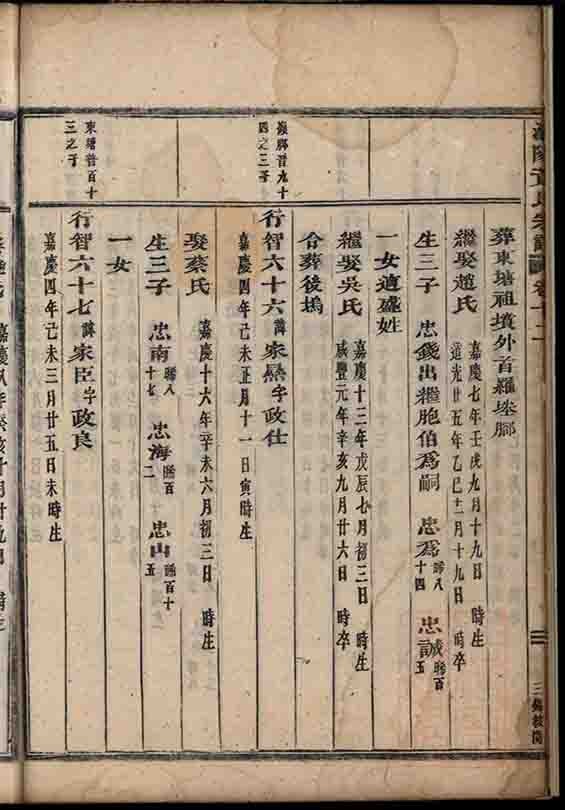 葬東塘祖墳外首羅垛腳
繼娶趙氏 嘉慶七年壬戌九月十九日 時生
道光廿五年乙巳十二月十九日 時卒
生三子 忠錢出繼胞伯爲嗣 忠爲聯八十四 忠誠聯百五
一女適盛姓
繼娶吳氏 嘉慶十三年戊辰七月初三日 時生
咸豐元年辛亥九月廿六日 時卒
合葬後塢
嶺腳晉九十四之三子
行智六十六諱家 字政仕
嘉慶四年己未正月十一日寅時生
娶蔡氏 嘉慶十六年辛未六月初三日 時生
生三子 忠南聯八十七 忠海聯百二 忠山聯百十五
一女
東塘晉百十三之子
行智六十七諱家臣字政良
嘉慶四年己未三月廿五日未時生